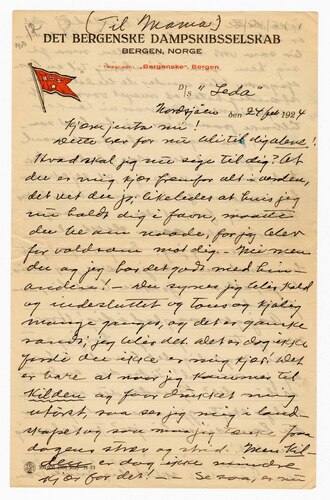 (Til Mama)
DET BERGENSKE DAMPSKIBSSELSKAB
BERGEN, NORGE
Telegr.adr.: "Bergenske", Bergen
B D S
D/S "Leda"
Nordsjøen den 24 1924
Kjære jenta mi!
Dette var for nu til dig alene!
Hvad skal jeg nu sige til dig? At
du er mig kjær fremfor alt i verden,
det vet du jo, likeledes at hvis jeg
nu holdt dig i favn, maatte
du be om naade, for jeg blev
for voldsom mot dig. Nei men
du og jeg har det godt med hin-
anden! – Du synes jeg blev kold
og indesluttet og taus og kjølig
mange ganger, og det er ganske
sandt; jeg blev det. Det er dog ikke
fordi du ikke er mig kjær! Det
er bare at naar jeg kommer til
kilden og faar drukket mig
utørst, saa ser jeg mig i land-
skapet og som maa jeg
dagens strev og strid. Men kil-
den er dog ikke mindre
kjær for det! – Se saa, er nu